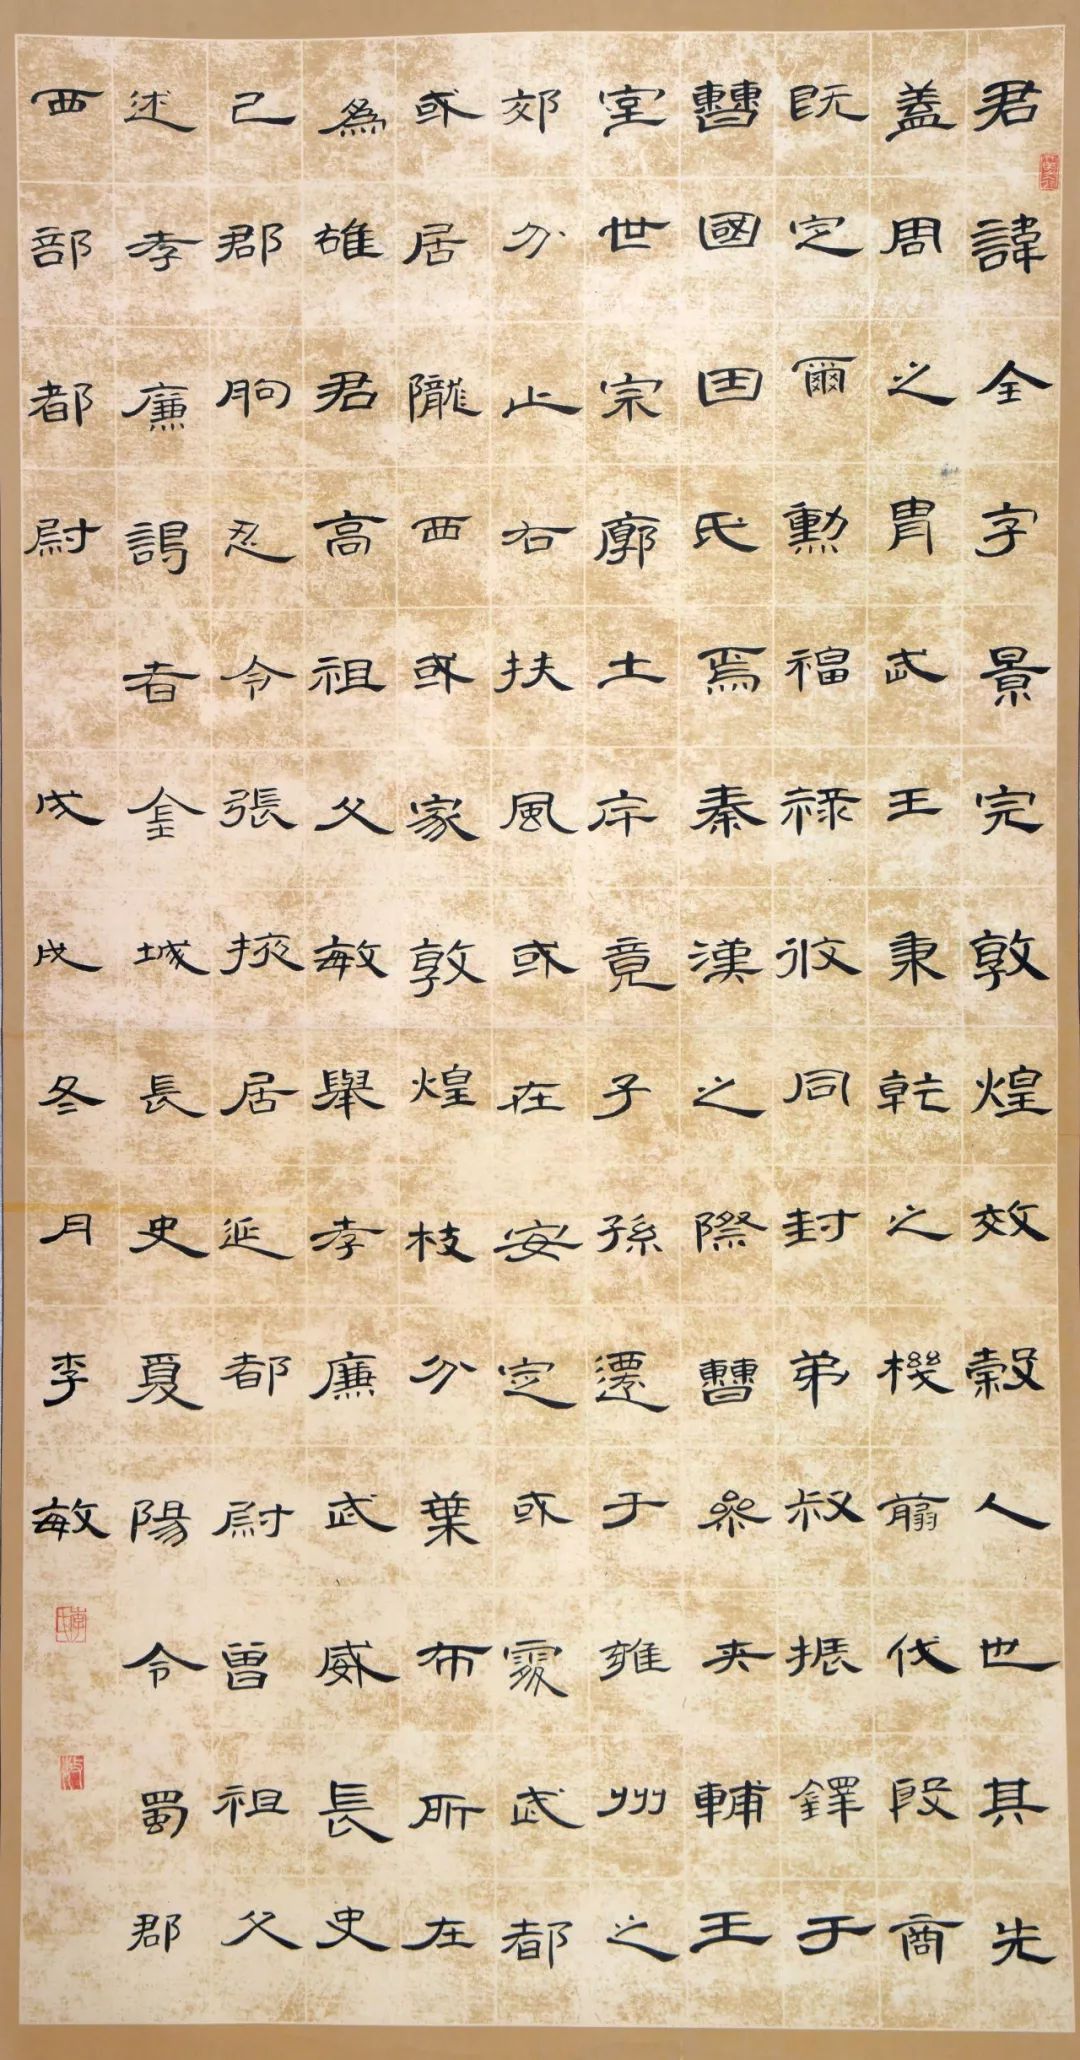 君諱全字景完敦煌效穀人也其先
蓋周之胄武王秉乾之機翦伐殷商
既定爾勳福祿攸同封弟叔振鐸于
曹國因氏焉秦漢之際曹參夾輔王
室世宗廓土斥竟子孫遷于雍州之
郊分止右扶風或在安定或處武都
或居隴西或家敦煌枝分葉布所在
為雄君高祖父敏舉孝廉武威長史
巴郡朐忍令張掖居延都尉曾祖父
述孝廉謁者金城長史夏陽令蜀郡
西部都尉 戊戌冬月李敏